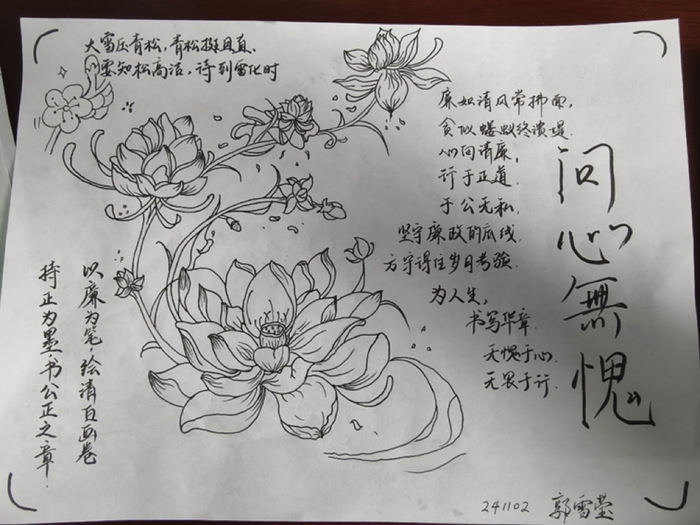 大雪压青松，青松挺且直、
要知松高洁，待到雪化时
廉如清风常拂面，
贪似蝼蚁终溃堤.
心向清廉，
行于正道.
于公无私，
坚守廉政的底线.
方守得住岁月考验.
为人生，
书写华章.
无愧于心.
无畏于行.
问心無愧
以廉为笔，绘清白画卷
持正为墨，书公正之章.
241102 郭雪莹